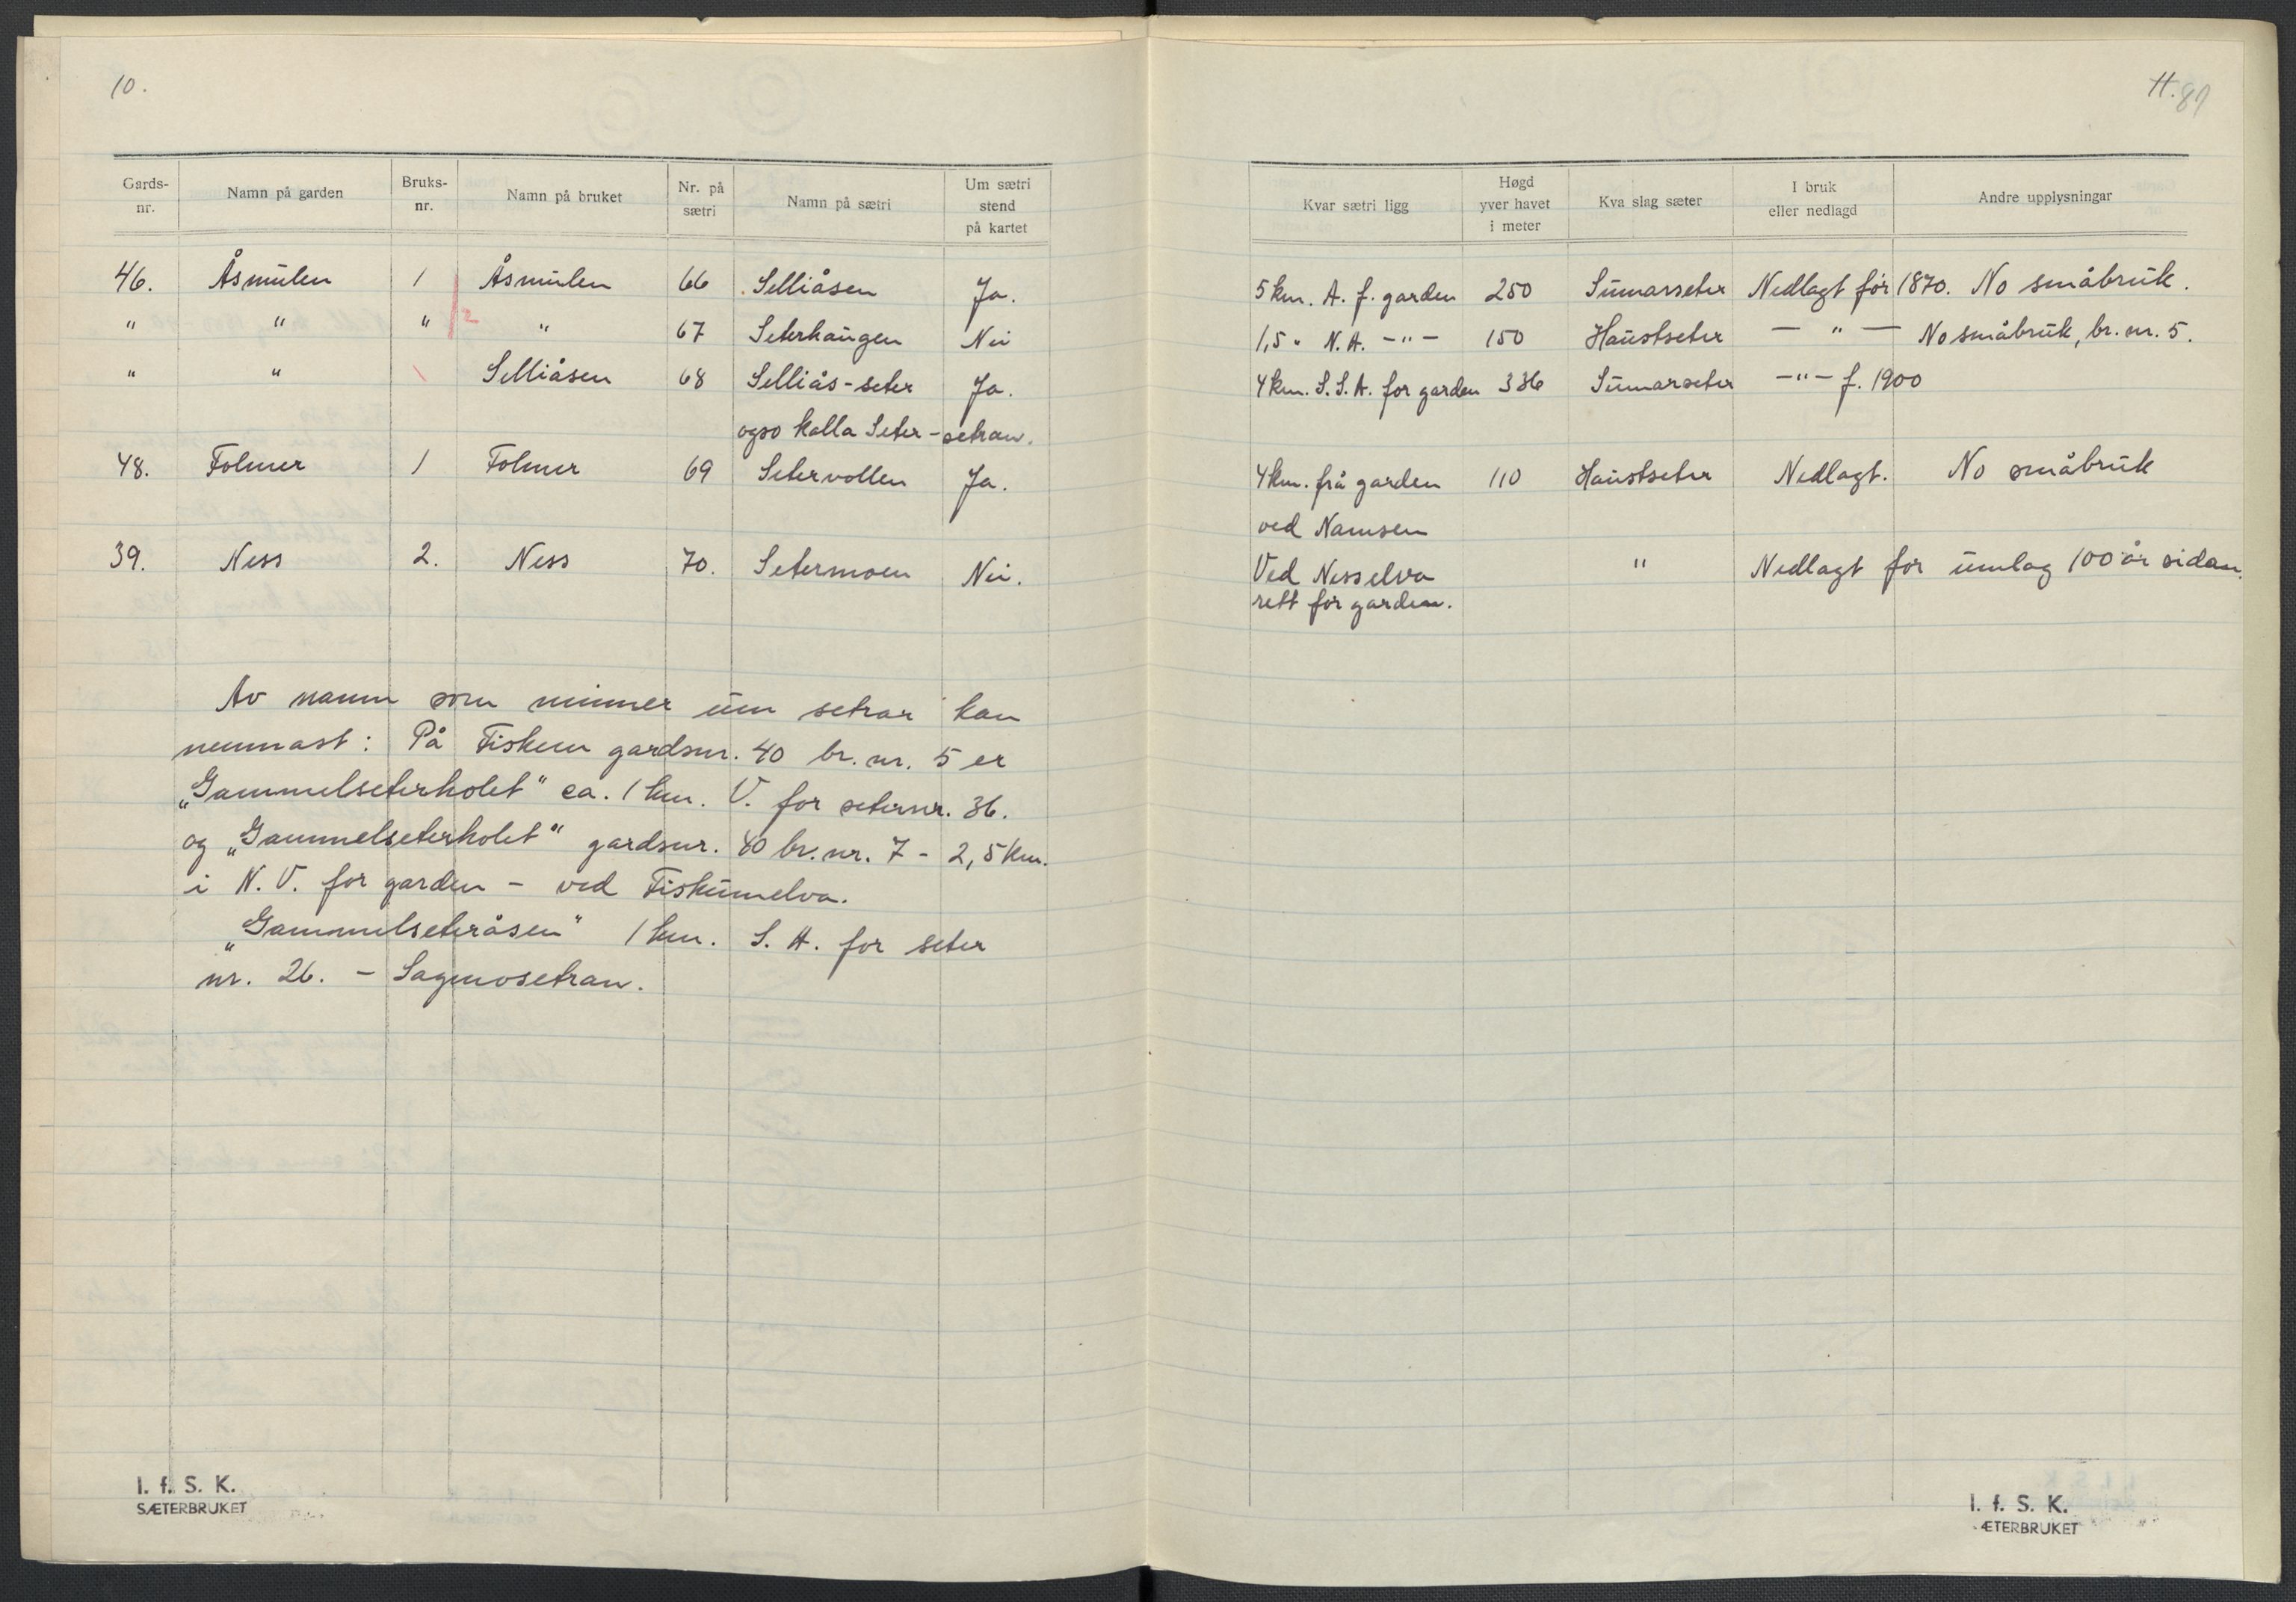 10.
Gards-nr. Namn på garden Bruks-nr. Namn på bruket Nr. på sætri Namn på sætri Um sætri stend på kartet
46. Åsmulen 1 Åsmulen 66 Selliåsen Ja.
" " " 2 " 67 Seterhaugen Nei
" " Selliåsen 68 Selliås-seter Ja.
ogso kalla Seter-setran.
48. Folmer 1 Folmer 69 Setervollen Ja.
39. Ness 2. Ness 70. Setermoen Nei.
Av namn som minner um setrar kan
nemnast: På Fiskem gardsnr. 40 br. nr. 5 er
"Gammelseterholet" ca. 1 km. V. for seternr. 36.
og "Gammelseterholet" gardsnr. 40 br. nr. 7 - 2,5 km.
i N. V. for garden - ved Fiskumelva.
"Gammelseteråsen" 1 km. S. A. for seter
nr. 26. - Sagmosetran.
I. f. S. K.
SÆTERBRUKET
11. 89
Kvar sætri ligg Høgd yver havet i meter Kva slag sæter I bruk eller nedlagd Andre upplysningar
5 km. A. f. garden 250 Sumarseter Nedlagt før 1870. No småbruk.
1,5 " N. A. -"- 150 Haustseter - " - No småbruk, br. nr. 5.
4 km. S. S. A. for garden 336 Sumarseter -"- f. 1900
4 km. frå garden 110 Haustseter Nedlagt. No småbruk
ved Namsen
Ved Nesselva " Nedlagt for umlag 100 år sidan.
rett for garden.
I. f. S. K.
ÆTERBRUKET